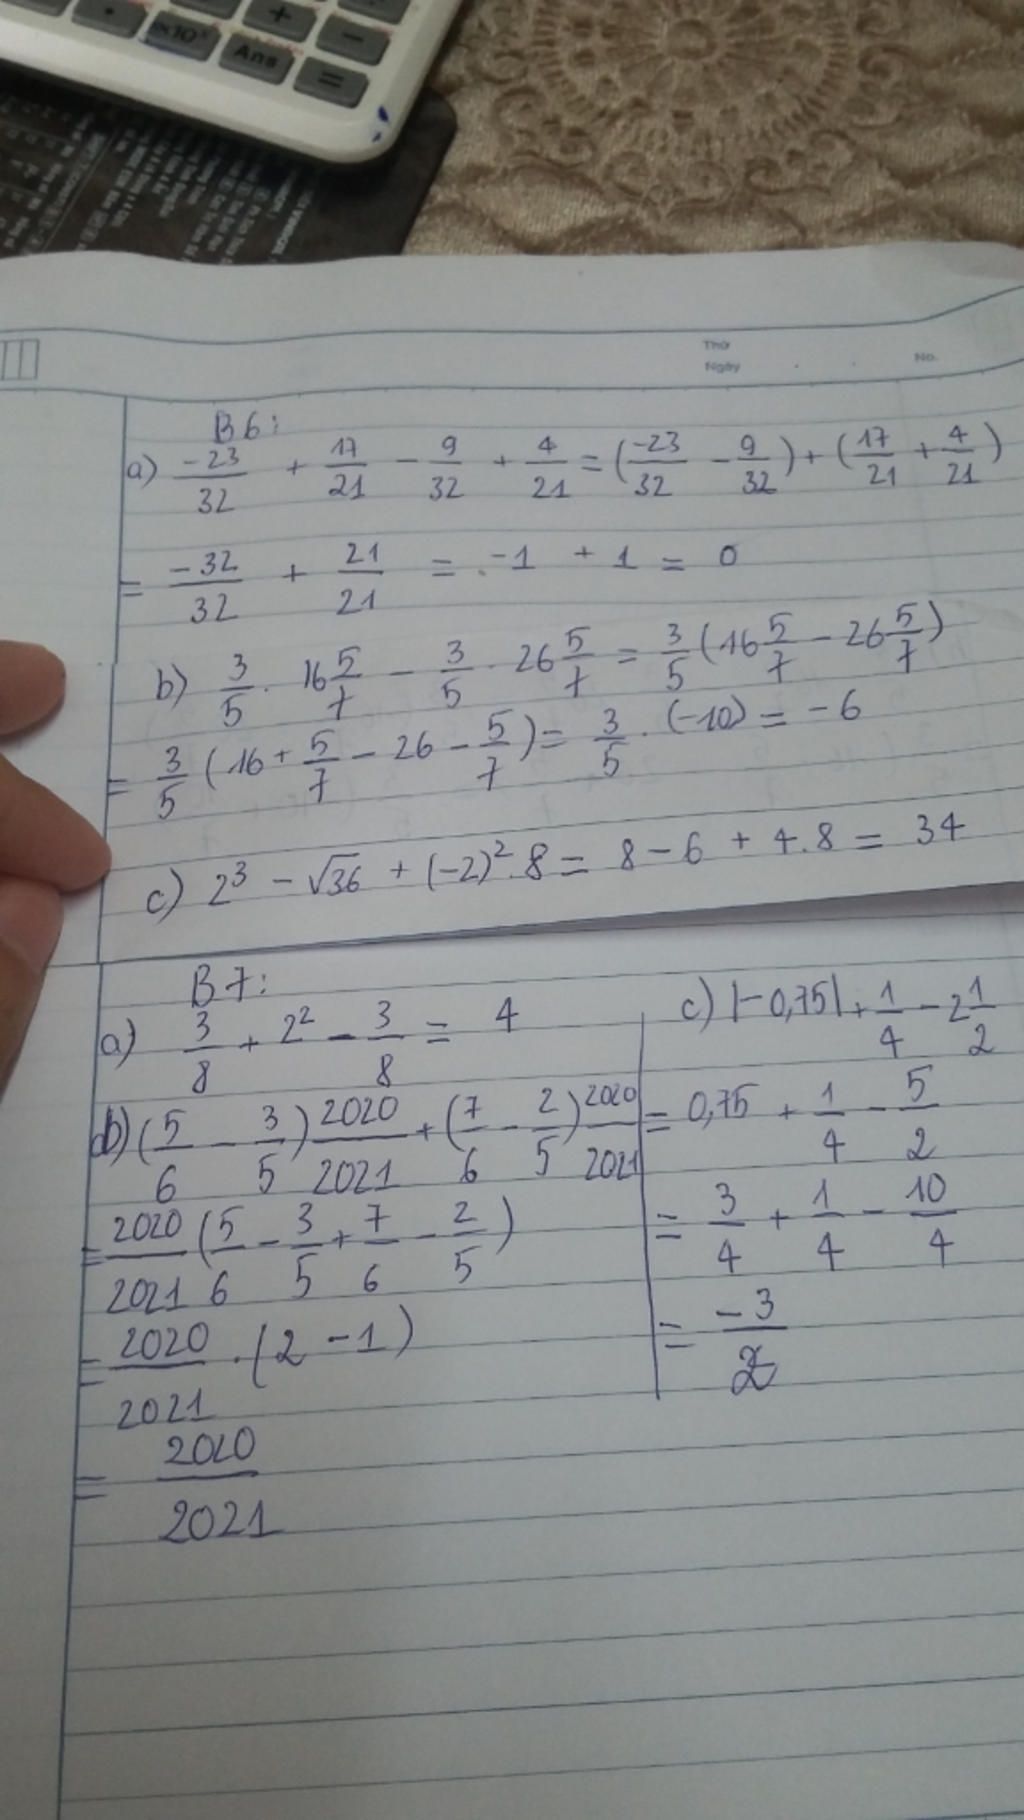 +
×10ˣ
Ans
−
=
Thứ
Ngày
No.
B6:
a) -23/32 + 17/21 - 9/32 + 4/21 = (-23/32 - 9/32) + (17/21 + 4/21)
= -32/32 + 21/21 = -1 + 1 = 0
b) 3/5 . 16 5/7 - 3/5 . 26 5/7 = 3/5 (16 5/7 - 26 5/7)
= 3/5 (16 + 5/7 - 26 - 5/7) = 3/5 . (-10) = -6
c) 2³ - √36 + (-2)².8 = 8 - 6 + 4.8 = 34
B7:
a) 3/8 + 2² - 3/8 = 4
b) (5/6 - 3/5) 2020/2021 + (7/6 - 2/5) 2020/2021
= 2020/2021 (5/6 - 3/5 + 7/6 - 2/5)
= 2020/2021 . (2 - 1)
= 2020/2021
c) |-0,75| + 1/4 - 2 1/2
= 0,75 + 1/4 - 5/2
= 3/4 + 1/4 - 10/4
= -3/2